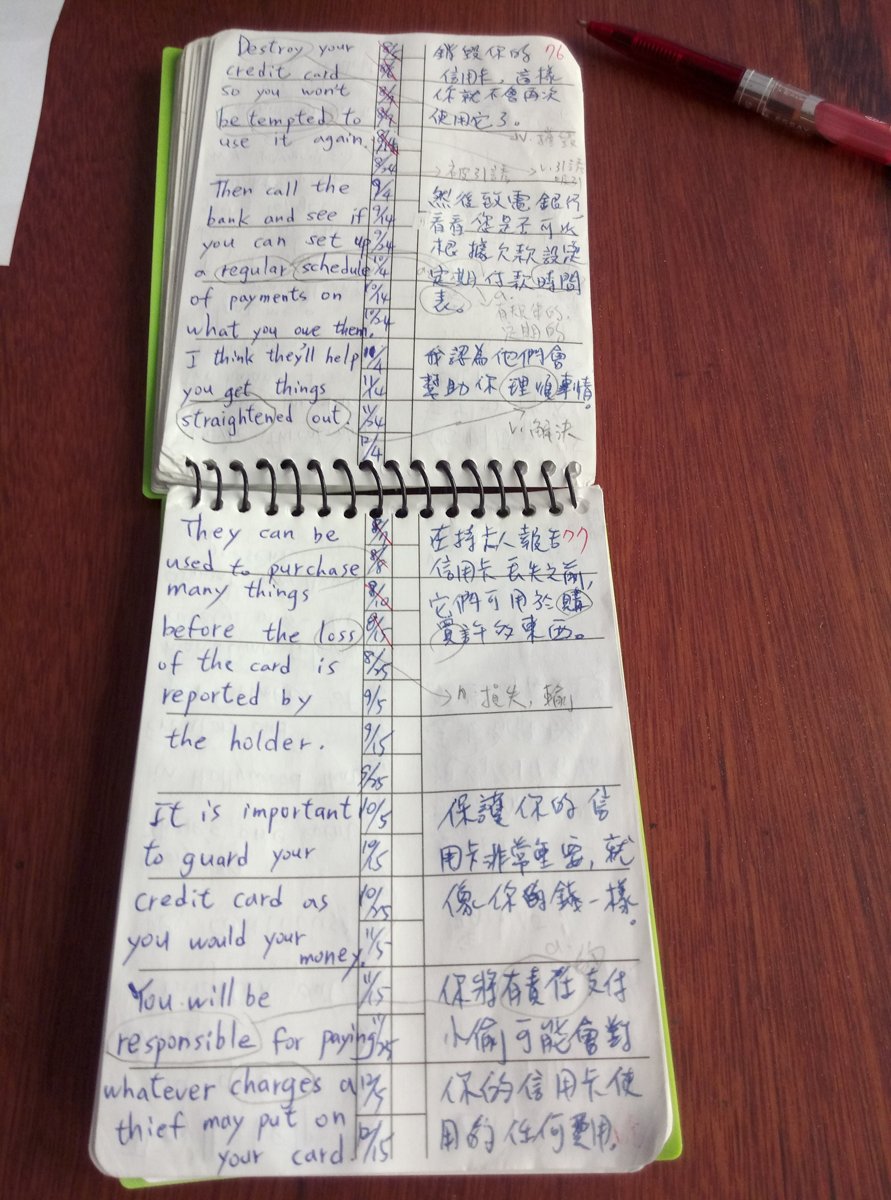 Destroy your
credit card
so you won't
be tempted to
use it again.
Then call the
bank and see if
you can set up
a regular schedule
of payments on
what you owe them.
I think they'll help
you get things
straightened out.
8/24
9/4
9/14
9/24
10/4
10/14
10/24
11/4
11/14
11/24
12/4
銷毀你的 76
信用卡，這樣
你就不會再次
使用它了。
→被引誘 → v.引誘
然後致電銀行
看看您是否可以
根據欠款設定
定期付款時間
表。
a.
有規律的,
定期的
我認為他們會
幫助你理順事情。
v.解決
They can be
used to purchase
many things
before the loss
of the card is
reported by
the holder.
It is important
to guard your
credit card as
you would your
money.
You will be
responsible for paying
whatever charges a
thief may put on
your card.
8/7
8/8
8/10
8/15
8/25
9/5
9/15
9/25
10/5
10/15
10/25
11/5
11/15
11/25
12/5
12/15
在持卡人報告77
信用卡丟失之前,
它們可用於購
買許多東西。
→n.損失,輸
保護你的信
用卡非常重要,就
像你的錢一樣.
你將有責任支付
小偷可能會對
你的信用卡使
用的任何費用.